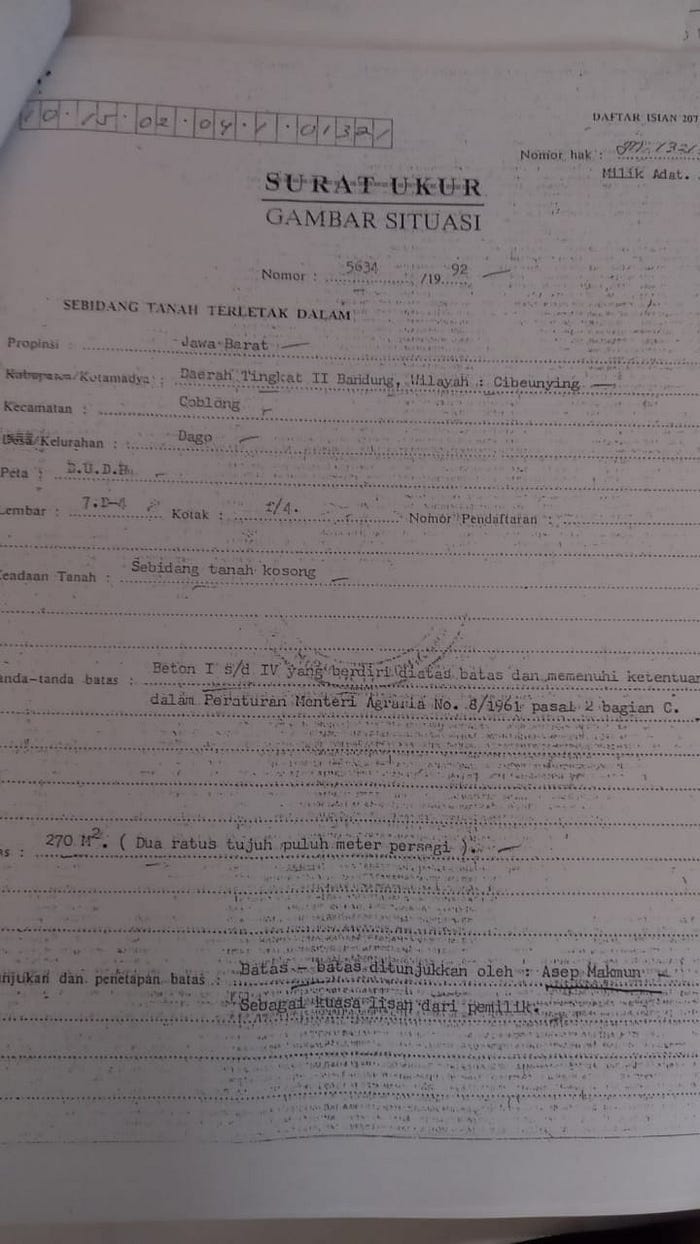 10.15.02.04.1.01321
DAFTAR ISIAN 207
Nomor hak : 1321
Milik Adat.
SURAT UKUR
GAMBAR SITUASI
Nomor : 5634 /19 92
SEBIDANG TANAH TERLETAK DALAM
Propinsi : Jawa Barat
Kabupaten/Kotamadya : Daerah Tingkat II Bandung, Wilayah : Cibeunying
Kecamatan : Coblong
Desa/Kelurahan : Dago
Peta :
Lembar : Kotak : Nomor Pendaftaran :
Keadaan Tanah : Sebidang tanah kosong
anda-tanda batas : Beton I s/d IV yang berdiri diatas batas dan memenuhi ketentuan
dalam Peraturan Menteri Agraria No. 8/1961 pasal 2 bagian C.
as : 270 M². ( Dua ratus tujuh puluh meter persegi ).
njukan dan penetapan batas : Batas - batas ditunjukkan oleh : Asep Makmun
Sebagai kuasa lisan dari pemilik.